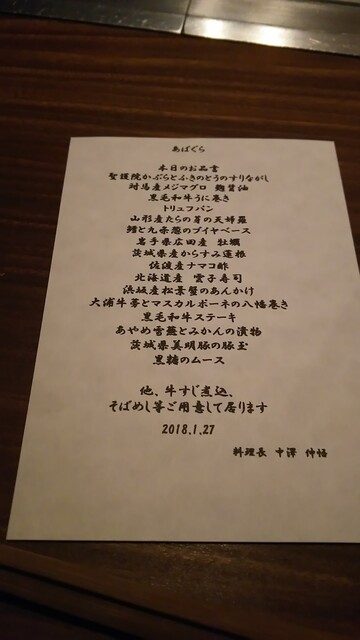 あばぐら
本日のお品書
聖護院かぶらとふきのとうのすりながし
対馬産メジマグロ 麹醤油
黒毛和牛うに巻き
トリュフパン
山形産たらの芽の天婦羅
鱈と九条葱のブイヤベース
岩手県広田産 牡蠣
茨城県産からすみ蓮根
佐渡産ナマコ酢
北海道産 雲子寿司
浜坂産松葉蟹のあんかけ
大浦牛蒡とマスカルポーネの八幡巻き
黒毛和牛ステーキ
あやめ雪蕪とみかんの漬物
茨城県美明豚の豚玉
黒糖のムース
他、牛すじ煮込、
そばめし等ご用意して居ります
2018.1.27
料理長 中澤